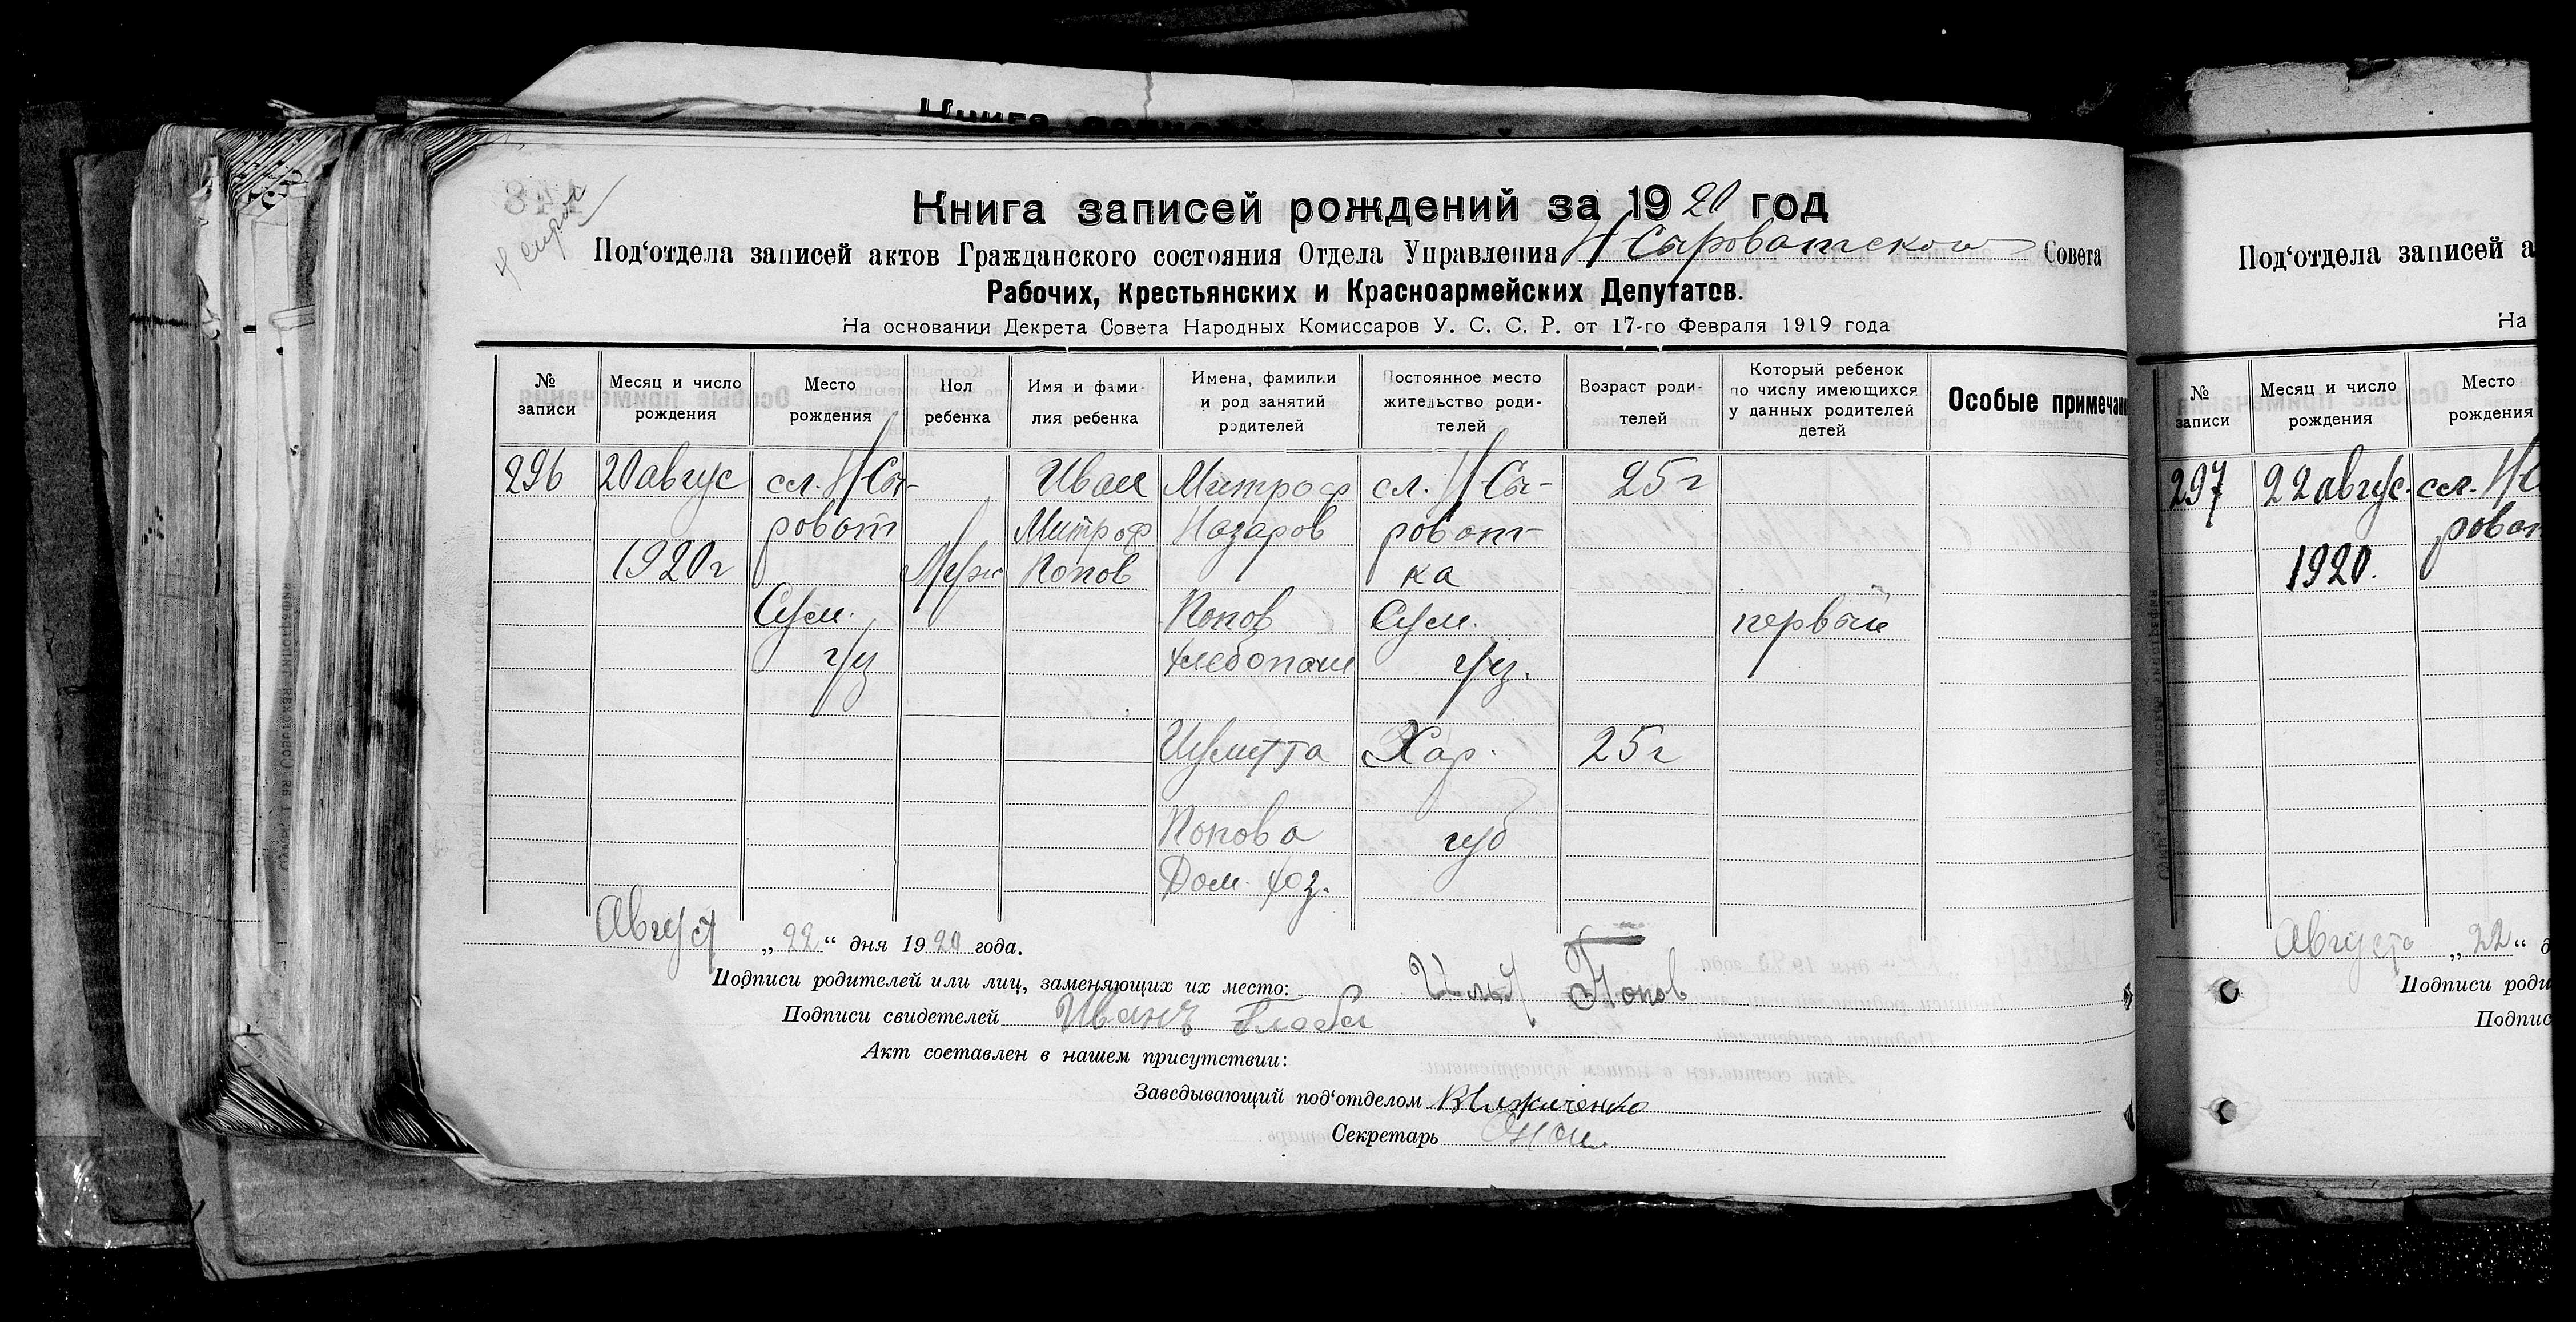 Книга записей
844
Н Сыров
Книга записей рождений за 1920 год
Под‘отдела записей актов Гражданского состояния Отдела Управления Н Сыроватского Совета
Рабочих, Крестьянских и Красноармейских Депутатов.
На основании Декрета Совета Народных Комиссаров У. С. С. Р. от 17-го Февраля 1919 года
№ записи
Месяц и число рождения
Место рождения
Пол ребенка
Имя и фами-
лия ребенка
Имена, фамилии
и род занятий
родителей
Постоянное место
жительство роди-
телей
Возраст роди-
телей
Который ребенок
по числу имеющихся
у данных родителей
детей
Особые примечан
296
20 авгус
1920 г
сл. Н Сы-
роват
Сум.
уз
Муж
Иван
Митроф
Попов
Митроф
Назаров
Попов
хлебопаш
Попова
Дом. хоз.
сл. Н Сы-
роват-
ка
Сум.
уз.
Хар.
губ
25 г
25 г
первый
Август „22“ дня 1920 года.
Подписи родителей или лиц, заменяющих их место: Попов
Подписи свидетелей Иванъ
Акт составлен в нашем присутствии:
Заведывающий под‘отделом
Секретарь
Под‘отдела записей а
На
№ записи
Месяц и число
рождения
Место
рождения
297
22 авгус.
1920.
сл. Н С
роват
Августа „22“ д
Подписи роди
Подпис